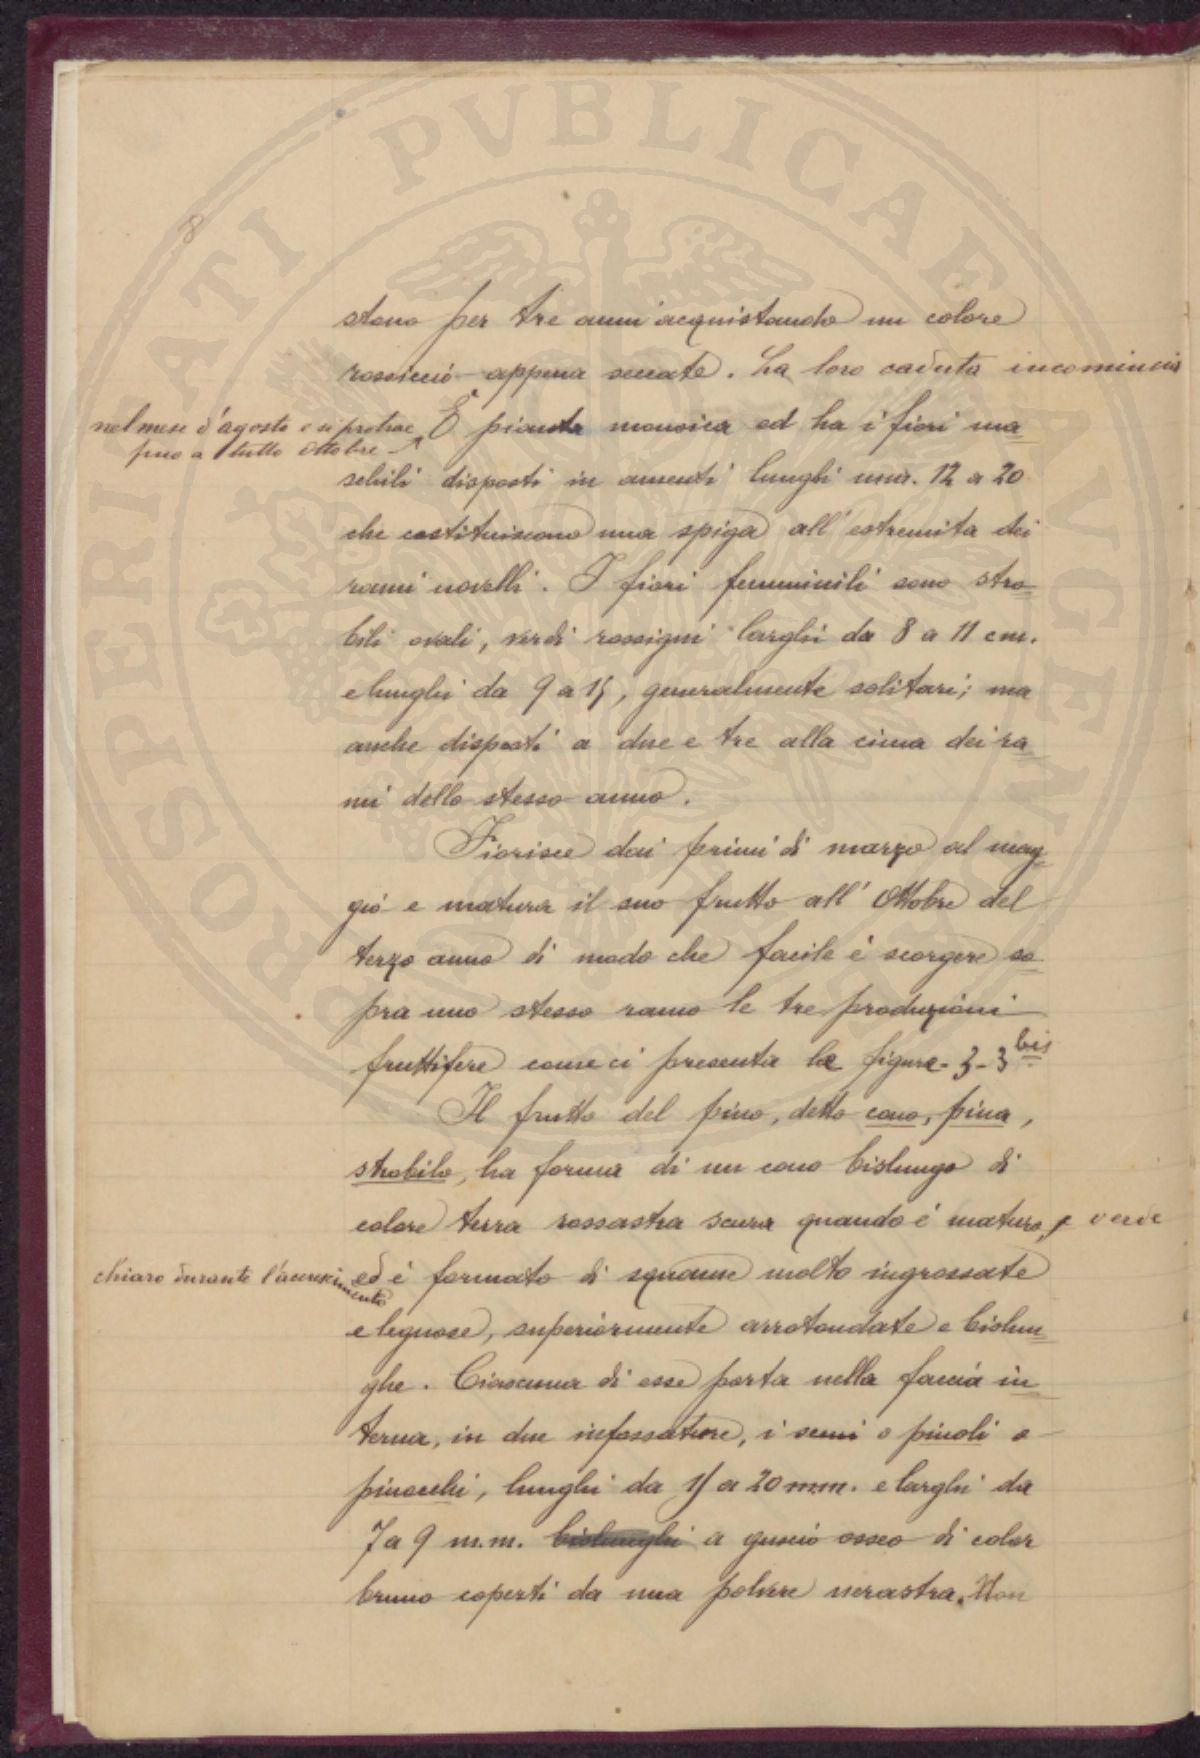 8
stono per tre anni acquistando un colore
rossiccio appena seccate. La loro caduta incomincia
nel mese d'agosto e si protrae
fino a tutto Ottobre
È pianta monoica ed ha i fiori ma-
schili disposti in amenti lunghi mm. 12 a 20
che costituiscono una spiga all'estremita dei
rami novelli. I fiori femminili sono stro-
bili ovali, verdi rossigni larghi da 8 a 11 cm.
e lunghi da 9 a 15, generalmente solitari; ma
anche disposti a due e tre alla cima dei ra-
mi dello stesso anno.
Fiorisce dai primi di marzo al mag-
gio e matura il suo frutto all'Ottobre del
terzo anno di modo che facile è scorgere so-
pra uno stesso ramo le tre produzioni
fruttifere come ci presenta la figura - 3 - 3 bis
Il frutto del pino, detto cono, pina,
strobilo, ha forma di un cono bislungo di
colore terra rossastra scura quando è maturo, e verde
chiaro durante l'accrescimento
ed è formato di squame molto ingrossate
e legnose, superiormente arrotondate e bislun-
ghe. Ciascuna di esse porta nella faccia in-
terna, in due infossature, i semi o pinoli o
pinocchi, lunghi da 15 a 20 mm. e larghi da
7 a 9 m.m. bislunghi a guscio osseo di color
bruno coperti da una polvere nerastra. Non
PROSPERITATI PVBLICAE AVGENDAE